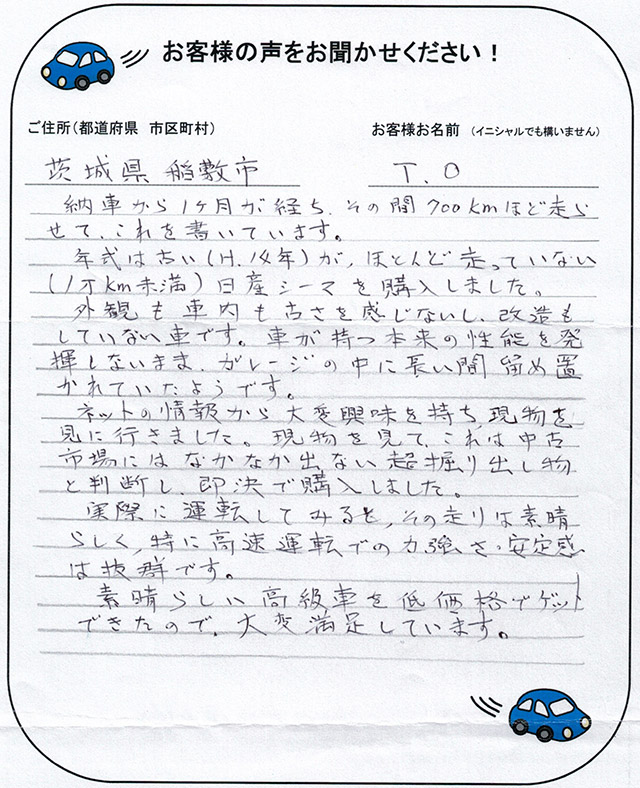 お客様の声をお聞かせください！
ご住所（都道府県 市区町村）
お客様お名前 （イニシャルでも構いません）
茨城県 稲敷市
T.O
納車から1ヶ月が経ち、その間700kmほど走ら
せて、これを書いています。
年式は古い（H.18年）が、ほとんど走っていない
（1万km未満）日産シーマを購入しました。
外観も車内も古さを感じないし、改造も
していない車です。車が持つ本来の性能を発
揮しないまま、ガレージの中に長い間留め置
かれていたようです。
ネットの情報から大変興味を持ち、現物を
見に行きました。現物を見て、これは中古
市場にはなかなか出ない超掘り出し物
と判断し、即決で購入しました。
実際に運転してみると、その走りは素晴
らしく、特に高速運転での力強さ・安定感
は抜群です。
素晴らしい高級車を低価格でゲット
できたので、大変満足しています。